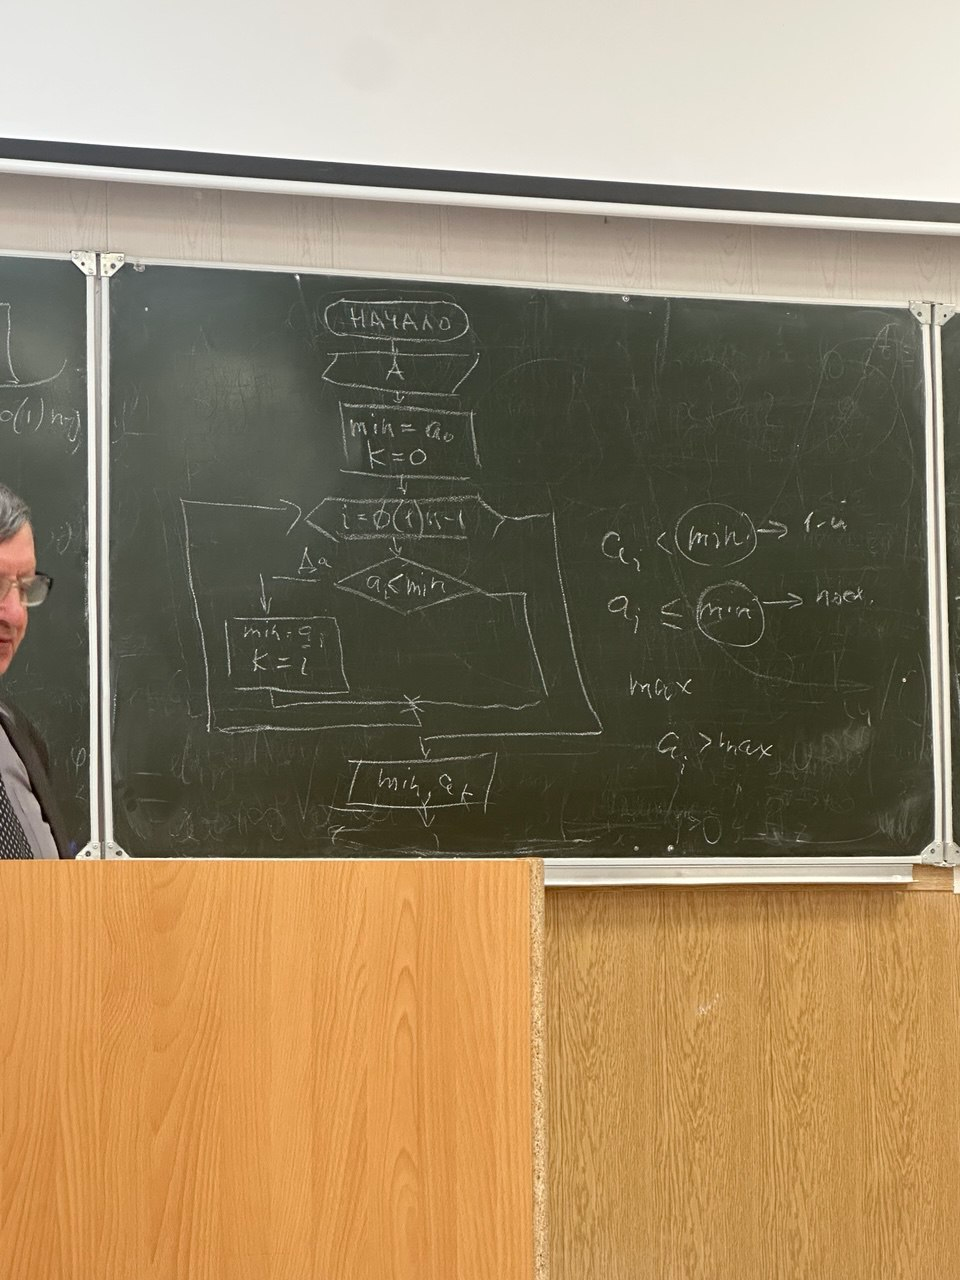 0(1)n-j
НАЧАЛО
A
min = a₀
K=0
i=0(1)n-1
Да
aᵢ<min
min=aᵢ
K=i
min, aₖ
aᵢ < min → 1-й
aᵢ ≤ min → посл.
max
aᵢ > max